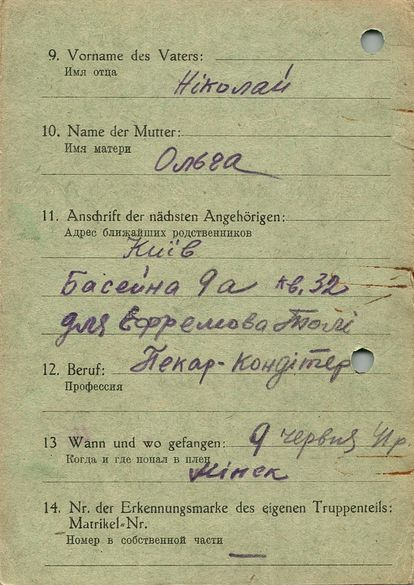 9. Vorname des Vaters:
Имя отца
Ніколай
10. Name der Mutter:
Имя матери
Ольга
11. Anschrift der nächsten Angehörigen:
Адрес ближайших родственников
Київ
Басейна 9а кв. 32
для Єфремова Толі
12. Beruf: Пекар-кондітер
Профессия
13 Wann und wo gefangen: 9 червня 41р.
Когда и где попал в плен
Мінск
14. Nr. der Erkennungsmarke des eigenen Truppenteils:
Matrikel-Nr.
Номер в собственной части
—